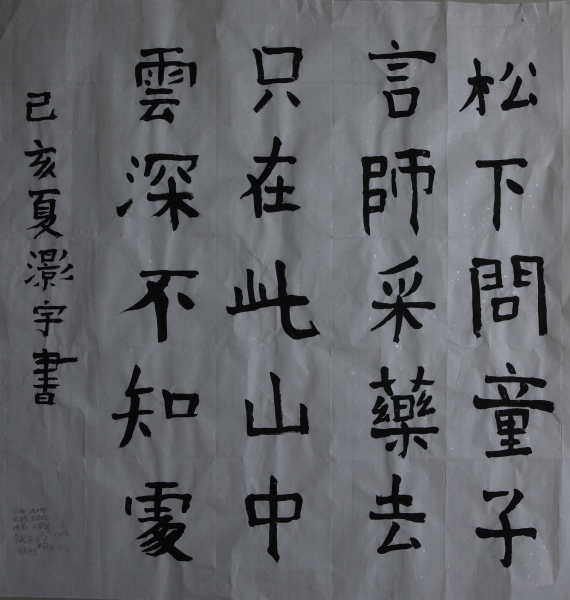 松下問童子
言師采藥去
只在此山中
雲深不知處
己亥夏灦宇書